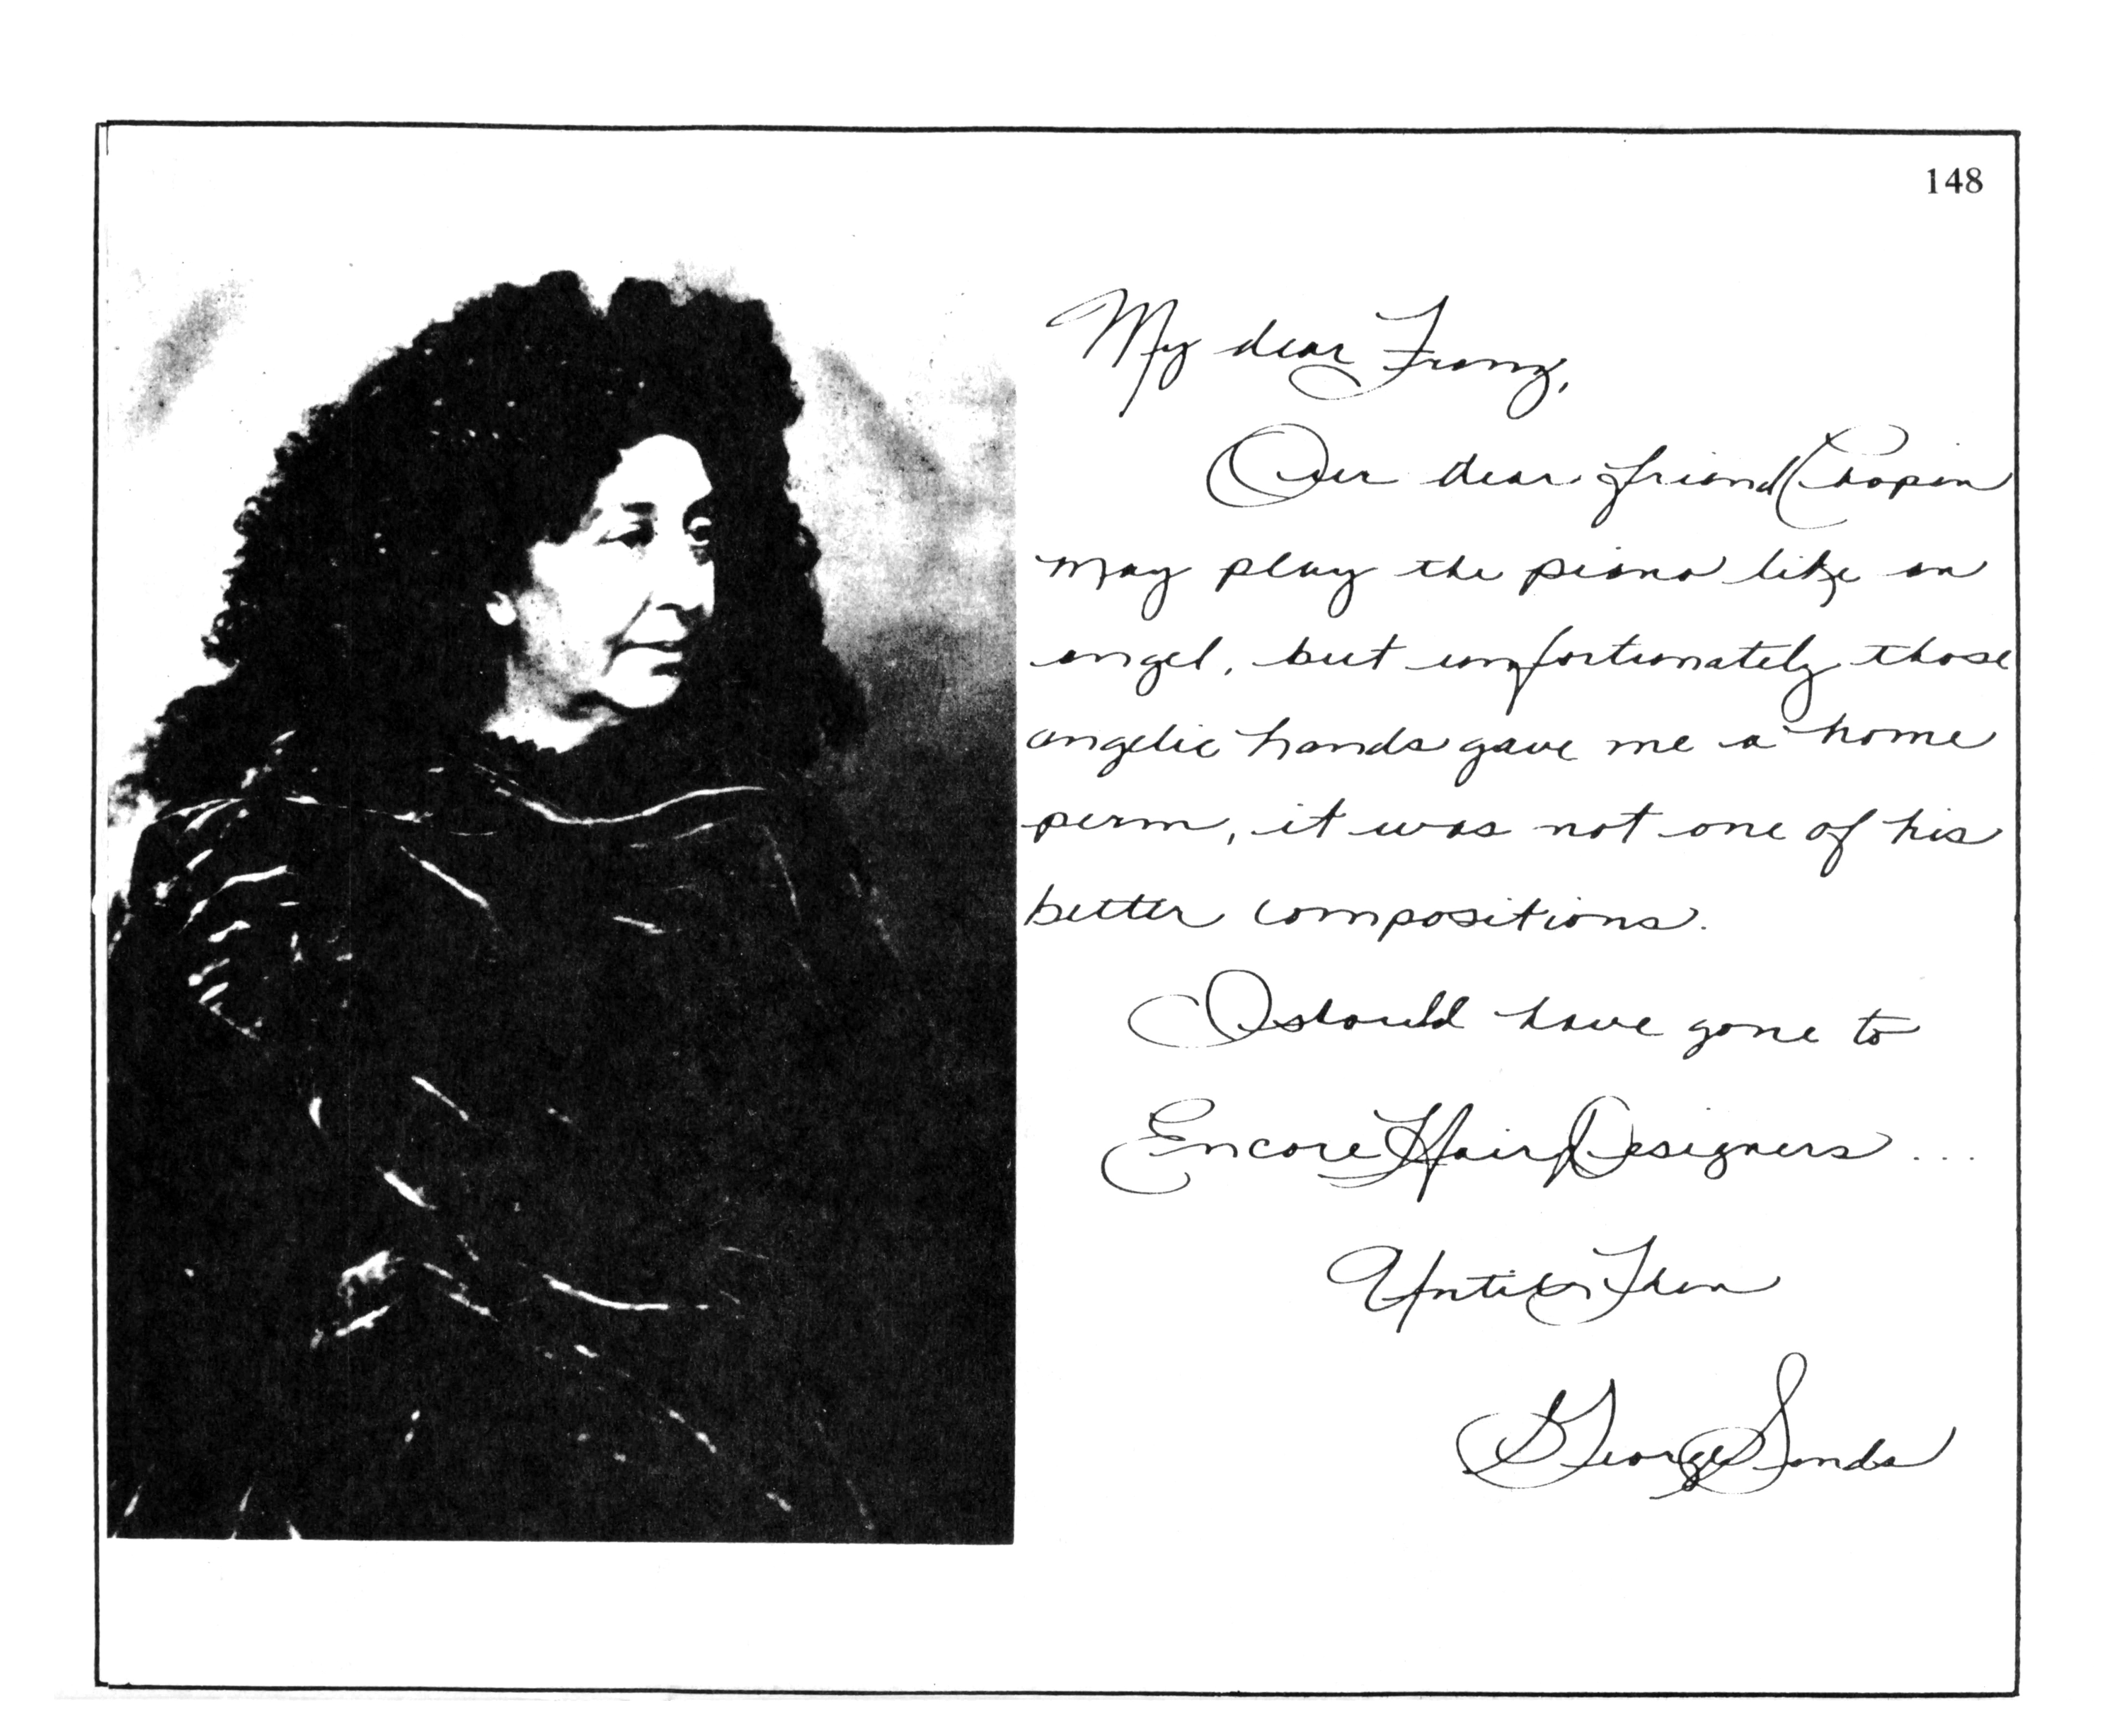 148
My dear Franz,
Our dear friend Chopin
may play the piano like an
angel, but unfortunately those
angelic hands gave me a home
perm, it was not one of his
better compositions.
I should have gone to
Encore Hair Designers ...
Until Then
George Sands